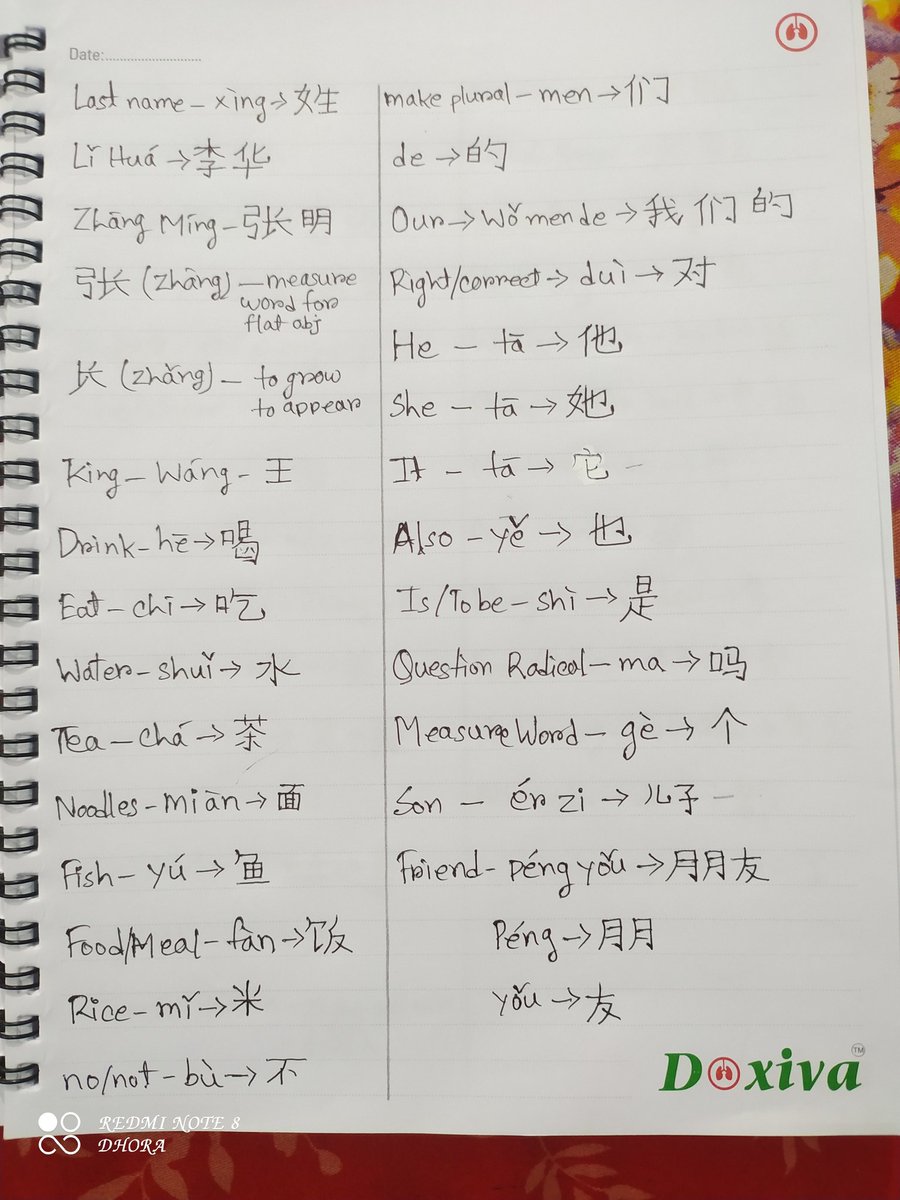 Date:
Last name – xìng → 姓
Lǐ Huá → 李华
Zhāng Míng – 张明
张 (zhāng) – measure
word for
flat obj
长 (zhǎng) – to grow
to appear
King – Wáng – 王
Drink – hē → 喝
Eat – chī → 吃
Water – shuǐ → 水
Tea – chá → 茶
Noodles – miàn → 面
Fish – yú → 鱼
Food/Meal – fàn → 饭
Rice – mǐ → 米
no/not – bù → 不
make plural – men → 们
de → 的
Our → Wǒ men de → 我们的
Right/correct → duì → 对
He – tā → 他
She – tā → 她
It – tā → 它 –
Also – yě → 也
Is/To be – shì → 是
Question Radical – ma → 吗
Measure Word – gè → 个
Son – ér zi → 儿子 –
Friend – péng yǒu → 朋友
Péng → 朋
yǒu → 友
Doxiva™
REDMI NOTE 8
DHORA